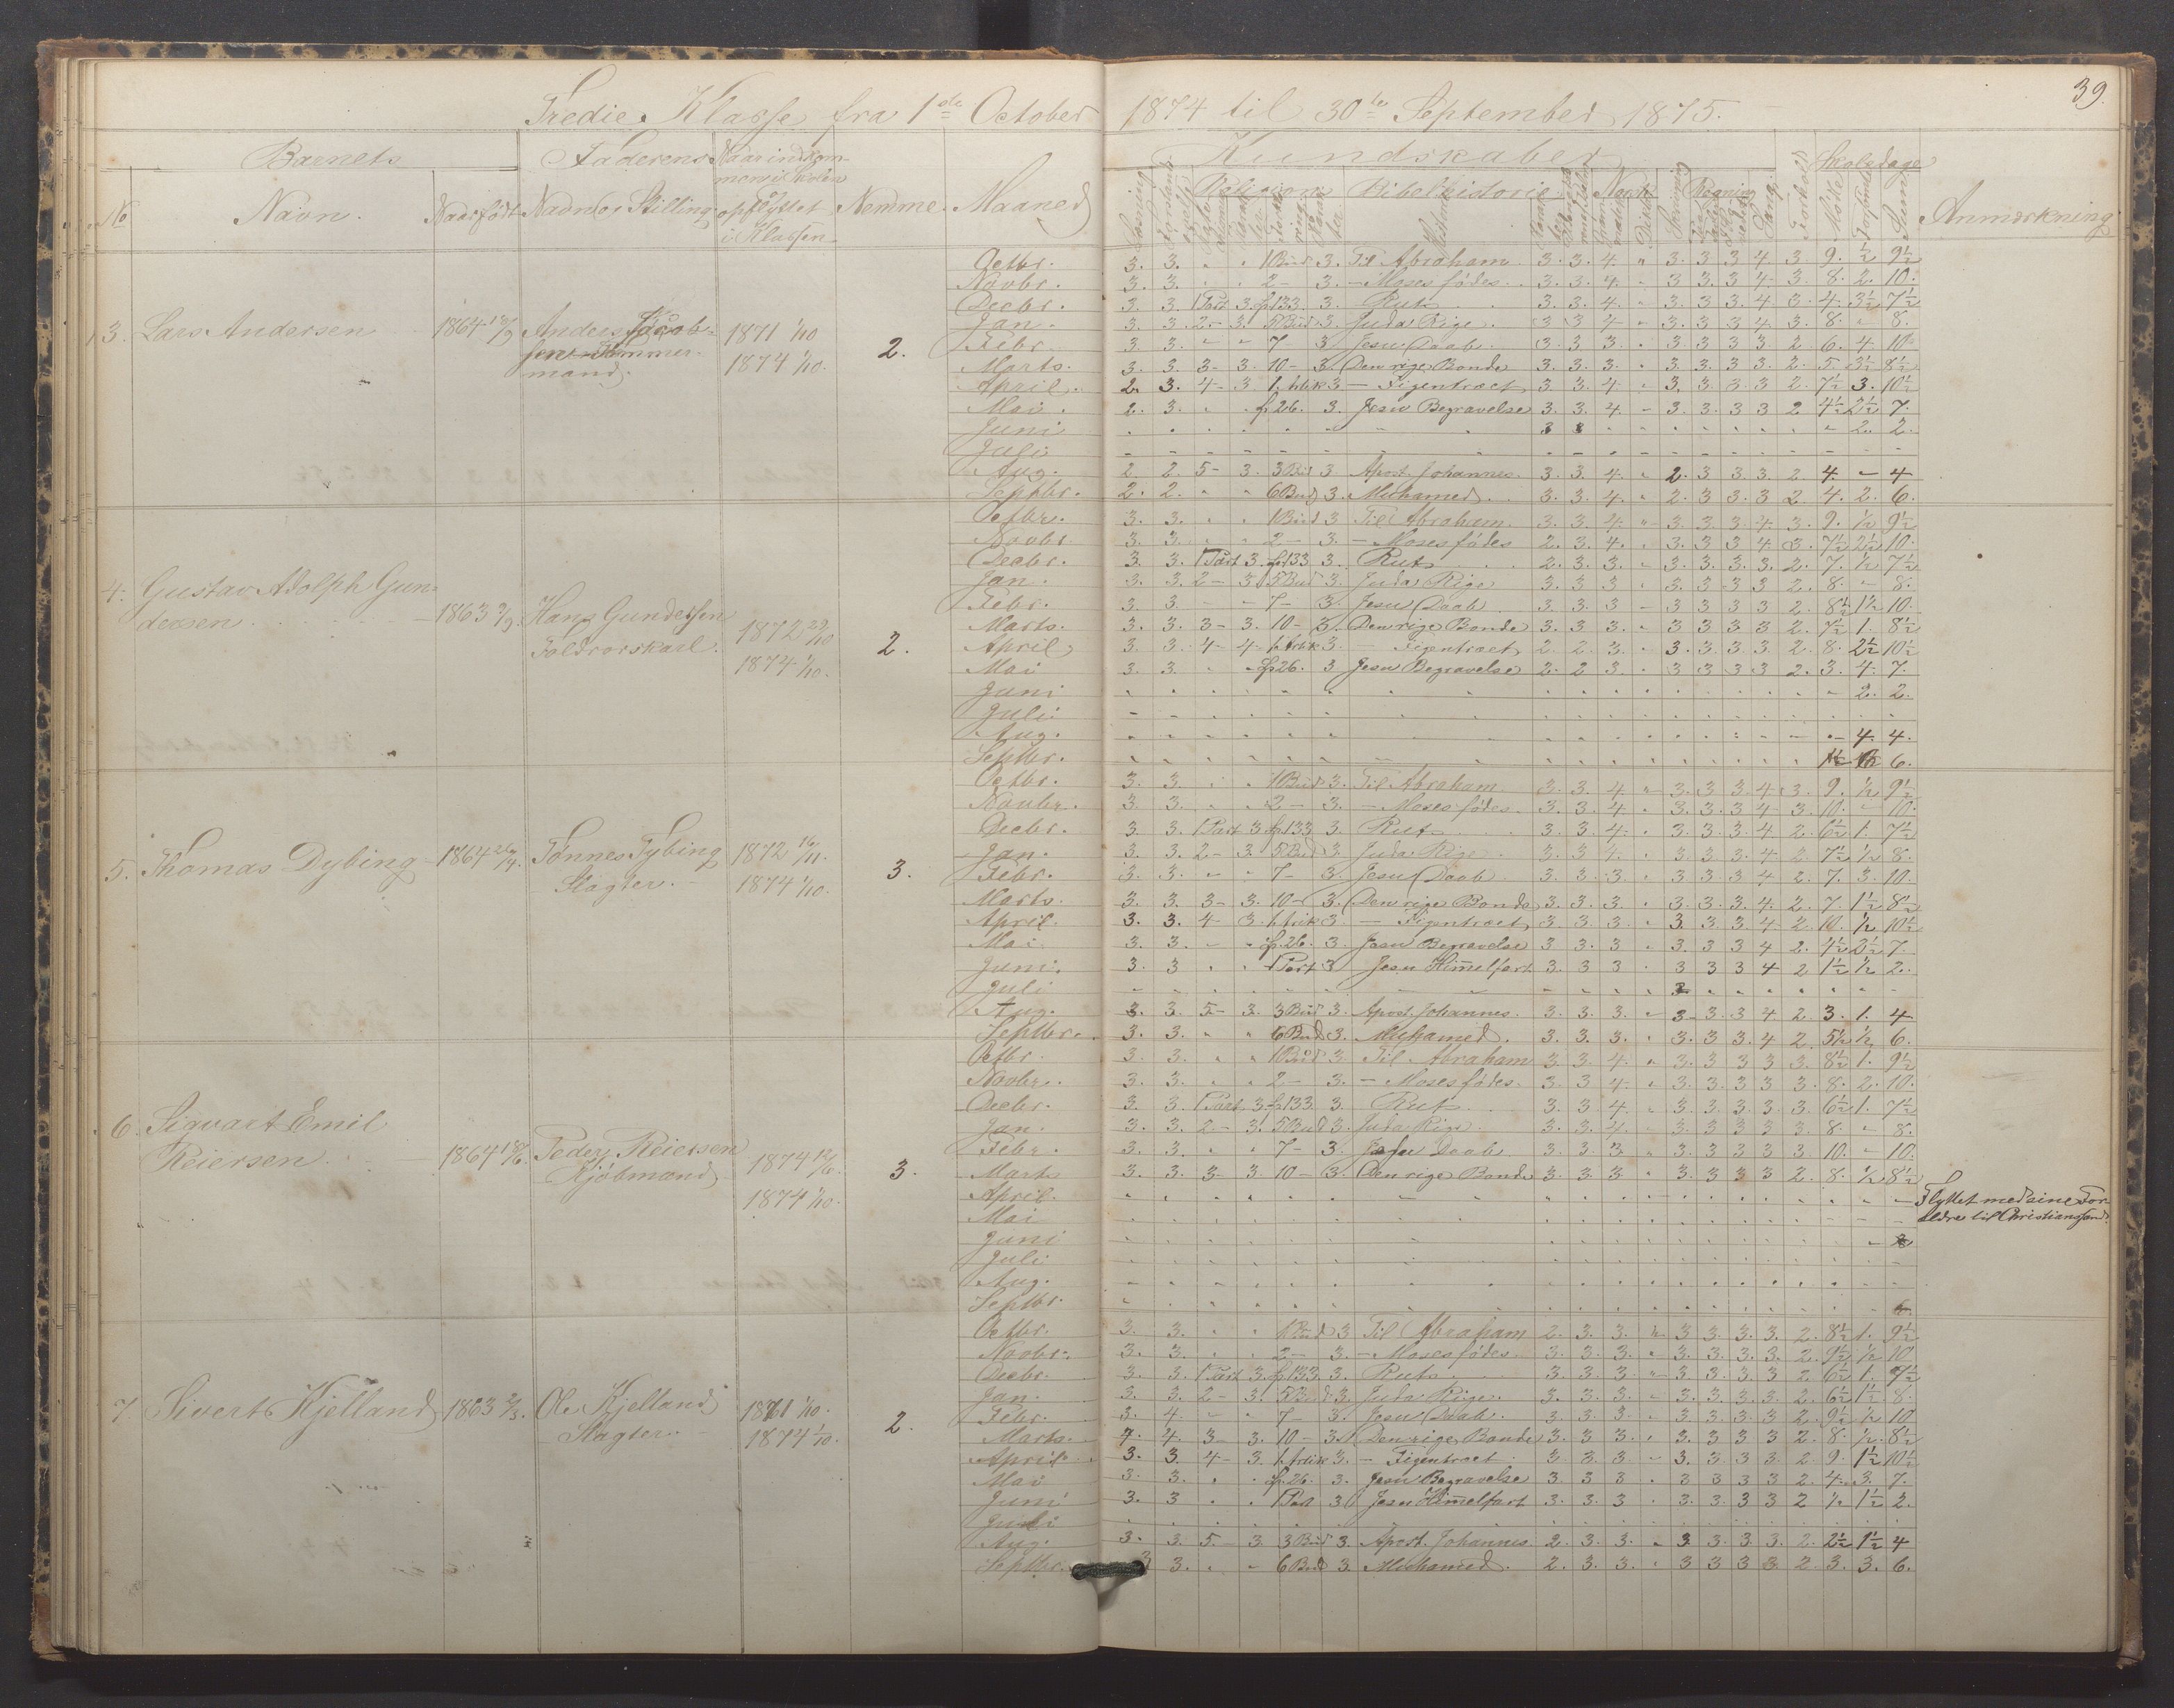 39.
Tredie Klasse fra 1ste October 1874 til 30te September 1875.
Barnets Faderens Naar indkommen i Skolen Kundskaber Skoledage
No Navn. Naar født Navn og Stilling opflyttet i Klassen Nemme. Maaned Religion Bibelhistorie Norsk Regning Sang. Forhold Mødt Forsømt Sum Anmærkning
3. Lars Andersen 1864 Anders Jacobsen Tømmermand 1871 1/10 1874 1/10. 2.
Octbr. 3. 3. 1 Bud 3. Til Abraham 3. 3. 4. " 3. 3. 3 4. 3. 9. ½ 9½
Novbr. 3. 3. 2 – 3. – Moses fødes 3. 3. 4. 3 3. 3 4. 3. 8. 2. 10.
Decbr. 3. 3. 1 Part 3. p. 133. 3. Rut 3. 3. 4. 3. 3. 3. 4 3. 4. 3½ 7½
Jan. 3. 3. 2 – 3. 5 Bud 3. Juda Rige. 3 3 4 3. 3. 3 4. 3. 8. 8.
Febr. 3. 3. 7 – 3. Jesu Daab. 3. 3 3. 3. 3 3 3. 2. 6. 4. 10
Marts. 3. 3. 3 – 3. 10 – 3. Den rige Bonde 3. 3. 3. 3. 3. 3. 3. 2. 5. 3½ 8½
April. 2. 3. 4 – 3. 1. Artik 3 – Figentræet 3. 3. 4. 3. 3. 3 3 2. 7½ 3. 10½
Mai. 2. 3. p. 26. 3. Jesu Begravelse 3. 3. 4 – 3. 3. 3 3 2. 4½ 2½ 7.
Juni 2. 2.
Juli
Aug. 2. 2. 5 – 3. 3 Bud 3 Apost. Johannes 3. 3. 4. 2. 3 3. 3. 2. 4. – 4
Septbr. 2. 2. 6 Bud 3. Muhamed. 3. 3. 4. 2. 3 3. 3 2. 4. 2. 6.
4. Gustav Adolph Gundersen 1863 Hans Gundersen Toldrorskarl. 1872 29/10 1874 1/10. 2.
Octbr. 3. 3. 1 Bud 3 Til Abraham. 3. 3. 4. 3. 3. 3. 4. 3. 9. ½ 9½
Novbr. 3. 3. 2 – 3. – Moses fødes 2. 3. 4. 3. 3. 3 4 3. 7½ 2½ 10.
Decbr. 3. 3. 1 Part 3 p. 133 3. Rut 2. 3. 3. 3. 3. 3. 3. 2. 7. ½ 7½
Jan. 3. 3. 2 – 3 5 Bud 3. Juda Rige 3. 3. 3 3. 3 3 3 2. 8. – 8.
Febr. 3. 3. 7 – 3. Jesu Daab 3. 3. 3 – 3 3 3 3 2. 8½ 1½ 10.
Marts. 3. 3. 3 – 3. 10 – 3. Den rige Bonde 3. 3. 3. 3 3 3 3 2. 7½ 1. 8½
April 3. 3. 4 – 4. 1. Artik 3. – Figentræet 2. 2. 3. 3. 3. 3. 3. 2. 8. 2½ 10½
Mai 3. 3. p. 26. 3 Jesu Begravelse 2. 2 3. 3 3 3 3 2. 3. 4. 7.
Juni 2. 2.
Juli.
Aug. 4. 4.
Septbr. 6.
5. Thomas Dybing 1864 26/4. Tønnes Tybing Slagter. 1872 16/11. 1874 1/10. 3.
Octbr. 3. 3. 1 Bud 3. Til Abraham 3. 3. 4 3. 3. 3 4 3. 9. ½ 9½
Novbr. 3. 3. 2 – 3. – Moses fødes. 3. 3 4. 3. 3. 3 4. 3. 10. – 10.
Decbr. 3. 3. 1 Part 3. p. 133 3. Rut 3. 3. 4. 3. 3. 3. 4 2. 6½ 1. 7½
Jan. 3. 3. 2 – 3. 5 Bud 3. Juda Rige. 3. 3 4. 3. 3. 3. 4. 2. 7½ ½ 8.
Febr. 3. 3. 7 – 3. Jesu Daab 3. 3. 3. 3 3 3 4 2. 7. 3. 10.
Marts. 3. 3. 3 – 3. 10 – 3. Den rige Bonde 3. 3. 3. 3. 3. 3. 4. 2. 7. 1½ 8½
April. 3. 3. 4 – 3. 1. Artik 3. – Figentræet 3. 3. 3. 3. 3. 3 4 2. 10. ½ 10½
Mai. 3. 3. p. 26. 3. Jesu Begravelse 3 3 3 3. 3 3 4 2. 4½ 2½ 7.
Juni. 3. 3 1 Part 3 Jesu Himmelfart 3. 3 3 3 3 3 4 2 1½ ½ 2.
Juli
Aug. 3. 3. 5 – 3. 3 Bud 3. Apost. Johannes. 3. 3. 3. 3 3. 3 4 2. 3. 1. 4
Septbr. 3. 3. 6 Bud 3. Muhamed. 3. 3. 3. 3. 3. 3. 4 2. 5½ ½ 6.
6. Sigvart Emil Reiersen 1864 Peder Reiersen Kjøbmand 1874 1874 1/10. 3.
Octbr. 3. 3. 1 Bud 3. Til Abraham 3. 3 4. 3. 3 3 3 3. 8½ 1. 9½
Novbr. 3. 3. 2 – 3. – Moses fødes. 3. 3 4. 3. 3. 3 3 3. 8. 2. 10.
Decbr. 3. 3. 1 Part 3. p. 133 3. Rut 3. 3. 4. 3. 3. 3. 3. 3. 6½ 1. 7½
Jan. 3. 3. 2 – 3. 5 Bud 3. Juda Rige. 3. 3. 4. 3. 3 3 3 3. 8. – 8.
Febr. 3. 3. 7 – 3. Jesu Daab 3. 3. 3 3. 3 3 3 3. 10. – 10.
Mart. 3. 3. 3 – 3. 10 – 3. Den rige Bonde 3. 3. 3 3. 3. 3 3 2. 8. ½ 8½
April. Flyttet med sine For
Mai ældre til Christianssand.
Juni
Juli
Aug.
Septbr.
7. Sivert Kjelland 1863 Ole Kjelland Slagter. 1871 1/10. 1874 1/10. 2.
Octbr. 3. 3. 1 Bud 3 Til Abraham 2. 3. 3. 3 3. 3. 3. 2. 8½ 1. 9½
Novbr. 3. 3. 2 – 3. – Moses fødes 3. 3. 3. 3. 3. 3. 3. 2. 9½ ½ 10
Decbr. 3. 3. 1 Part 3. p. 133 3. Rut 3. 3. 3 3. 3. 3. 3 2. 6½ 1. 7½
Jan. 3. 3. 2 – 3. 5 Bud 3. Juda Rige. 3. 3. 3. 3. 3. 3. 3. 2. 6½ 1½ 8.
Febr. 3. 4. 7 – 3. Jesu Daab. 3. 3. 3. 3. 3. 3. 3 2. 9½ ½ 10
Marts. 4. 4. 3 – 3. 10 – 3. Den rige Bonde 3. 3. 3 3. 3. 3 3 2. 8. ½ 8½
April. 3. 3. 4 – 3. 1. Artik 3. – Figentræet 3. 3. 3. 3. 3. 3. 3. 2. 9. 1½ 10½
Mai 3. 3. p. 26. 3. Jesu Begravelse 3. 3 3 3 3 3 3 2. 4. 3. 7.
Juni 3. 3 1 Part 3. Jesu Himmelfart 3. 3. 3 3. 3. 3 3 2 ½ 1½ 2.
Juli
Aug. 3. 3. 5 – 3. 3 Bud 3. Apost. Johannes 2. 3. 3. 3 3. 3. 3. 2. 2½ 1½ 4
Septbr. 3 3. 6 Bud 3. Muhamed. 2. 3. 3. 3 3 3 3 2. 3. 3. 6.